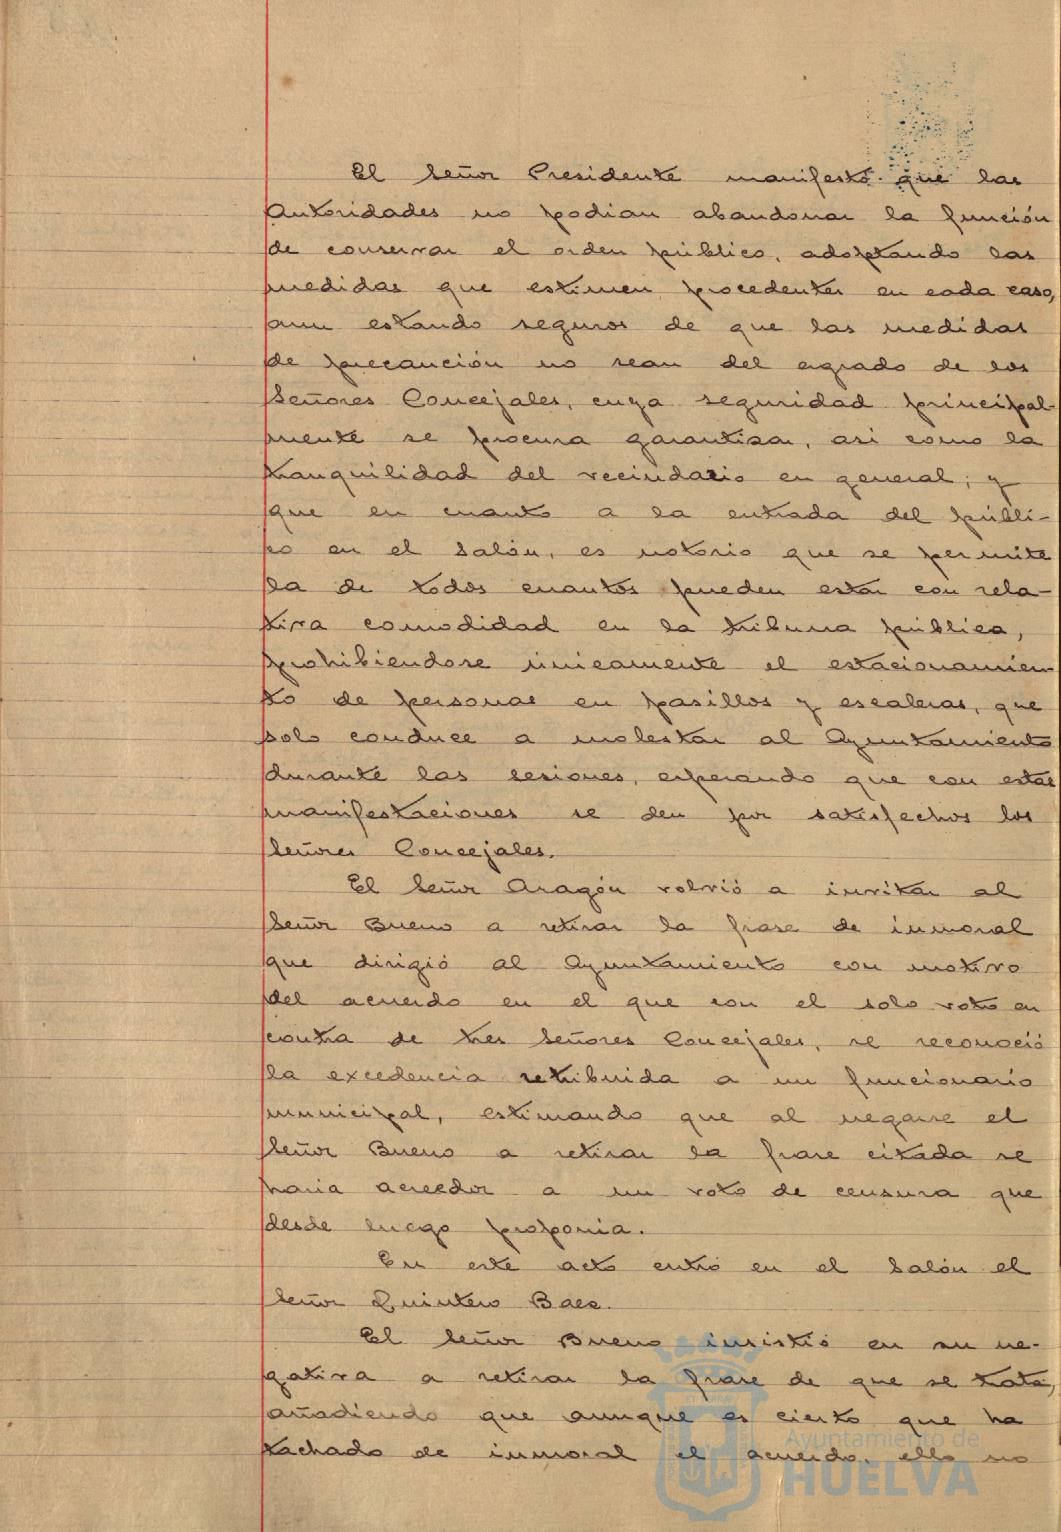 El Señor Presidente manifestó que las
Autoridades no podian abandonar la función
de conservar el orden público, adoptando las
medidas que estimen procedentes en cada caso,
aun estando seguros de que las medidas
de precaución no sean del agrado de los
Señores Concejales, cuya seguridad principal-
mente se procura garantizar, asi como la
tranquilidad del vecindario en general; y
que en cuanto a la entrada del públi-
co en el Salón, es notorio que se permite
la de todos cuantos pueden estar con rela-
tiva comodidad en la tribuna pública,
prohibiendose únicamente el estacionamien
to de personas en pasillos y escaleras, que
solo conduce a molestar al Ayuntamiento
durante las sesiones, esperando que con estas
manifestaciones se den por satisfechos los
Señores Concejales.
El Señor Aragón volvió a invitar al
Señor Bueno a retirar la frase de inmoral
que dirigió al Ayuntamiento con motivo
del acuerdo en el que con el solo voto en
contra de tres Señores Concejales, se reconoció
la excedencia retribuida a un funcionario
municipal, estimando que al negarse el
Señor Bueno a retirar la frase citada se
haria acreedor a un voto de censura que
desde luego proponia.
En este acto entró en el Salón el
Señor Quintero Baez.
El Señor Bueno insistió en su ne-
gativa a retirar la frase de que se trata,
añadiendo que aunque es cierto que ha
tachado de inmoral el acuerdo, ello no
Ayuntamiento de
HUELVA